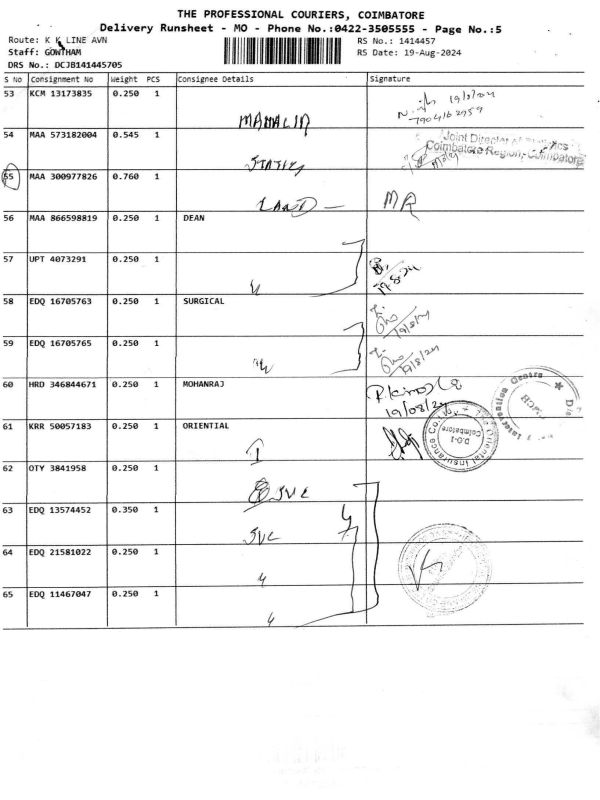 THE PROFESSIONAL COURIERS, COIMBATORE
Delivery Runsheet - MO - Phone No.:0422-3505555 - Page No.:5
Route: K K LINE AVN
RS No.: 1414457
Staff: GONTHAM
RS Date: 19-Aug-2024
DRS No.: DCJB141445705
S No Consignment No Weight PCS Consignee Details Signature
53 KCM 13173835 0.250 1
19/8/24
54 MAA 573182004 0.545 1
Joint Director of
Coimbatore Region, Coimbatore
55 MAA 300977826 0.760 1
LAND - MR
56 MAA 866598819 0.250 1 DEAN
57 UPT 4073291 0.250 1
19.8.24
58 EDQ 16705763 0.250 1 SURGICAL
19/8/24
59 EDQ 16705765 0.250 1
19/8/24
60 HRD 346844671 0.250 1 MOHANRAJ
19/08/24
61 KRR 50057183 0.250 1 ORIENTIAL
Oriental Insurance Co.
D.O-1
Coimbatore
62 OTY 3841958 0.250 1
SVC
63 EDQ 13574452 0.350 1
SVC
64 EDQ 21581022 0.250 1
65 EDQ 11467047 0.250 1